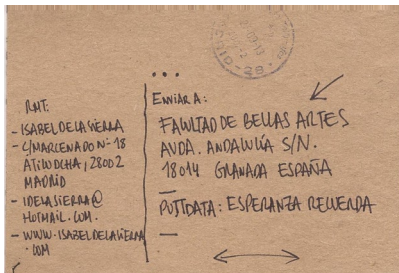 RMT:
- ISABEL DE LA SIERRA
- C/MARCENADO Nº 18
ATICO DCHA, 28002
MADRID
- IDELASIERRA@
HOTMAIL.COM.
- WWW.ISABELDELASIERRA
.COM
...
ENVIAR A:
FACULTAD DE BELLAS ARTES
AVDA. ANDALUCÍA S/N.
18014 GRANADA ESPAÑA
POSTDATA: ESPERANZA RECUERDA